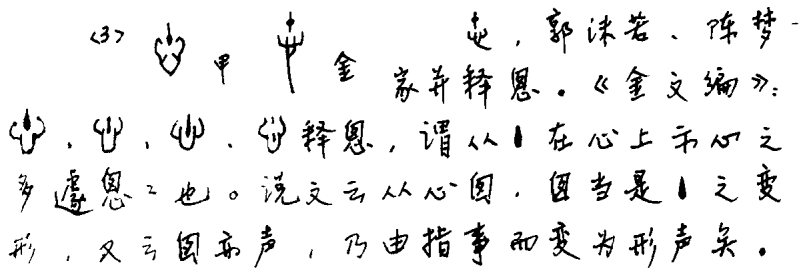 <3> 甲 金 ，郭沫若、陈梦
家并释悤。《金文编》：
、 、 、 释悤，谓从 在心上示心之
多遽悤=也。说文云从心囱，囱当是 之变
形，又云囱亦声，乃由指事而变为形声矣。